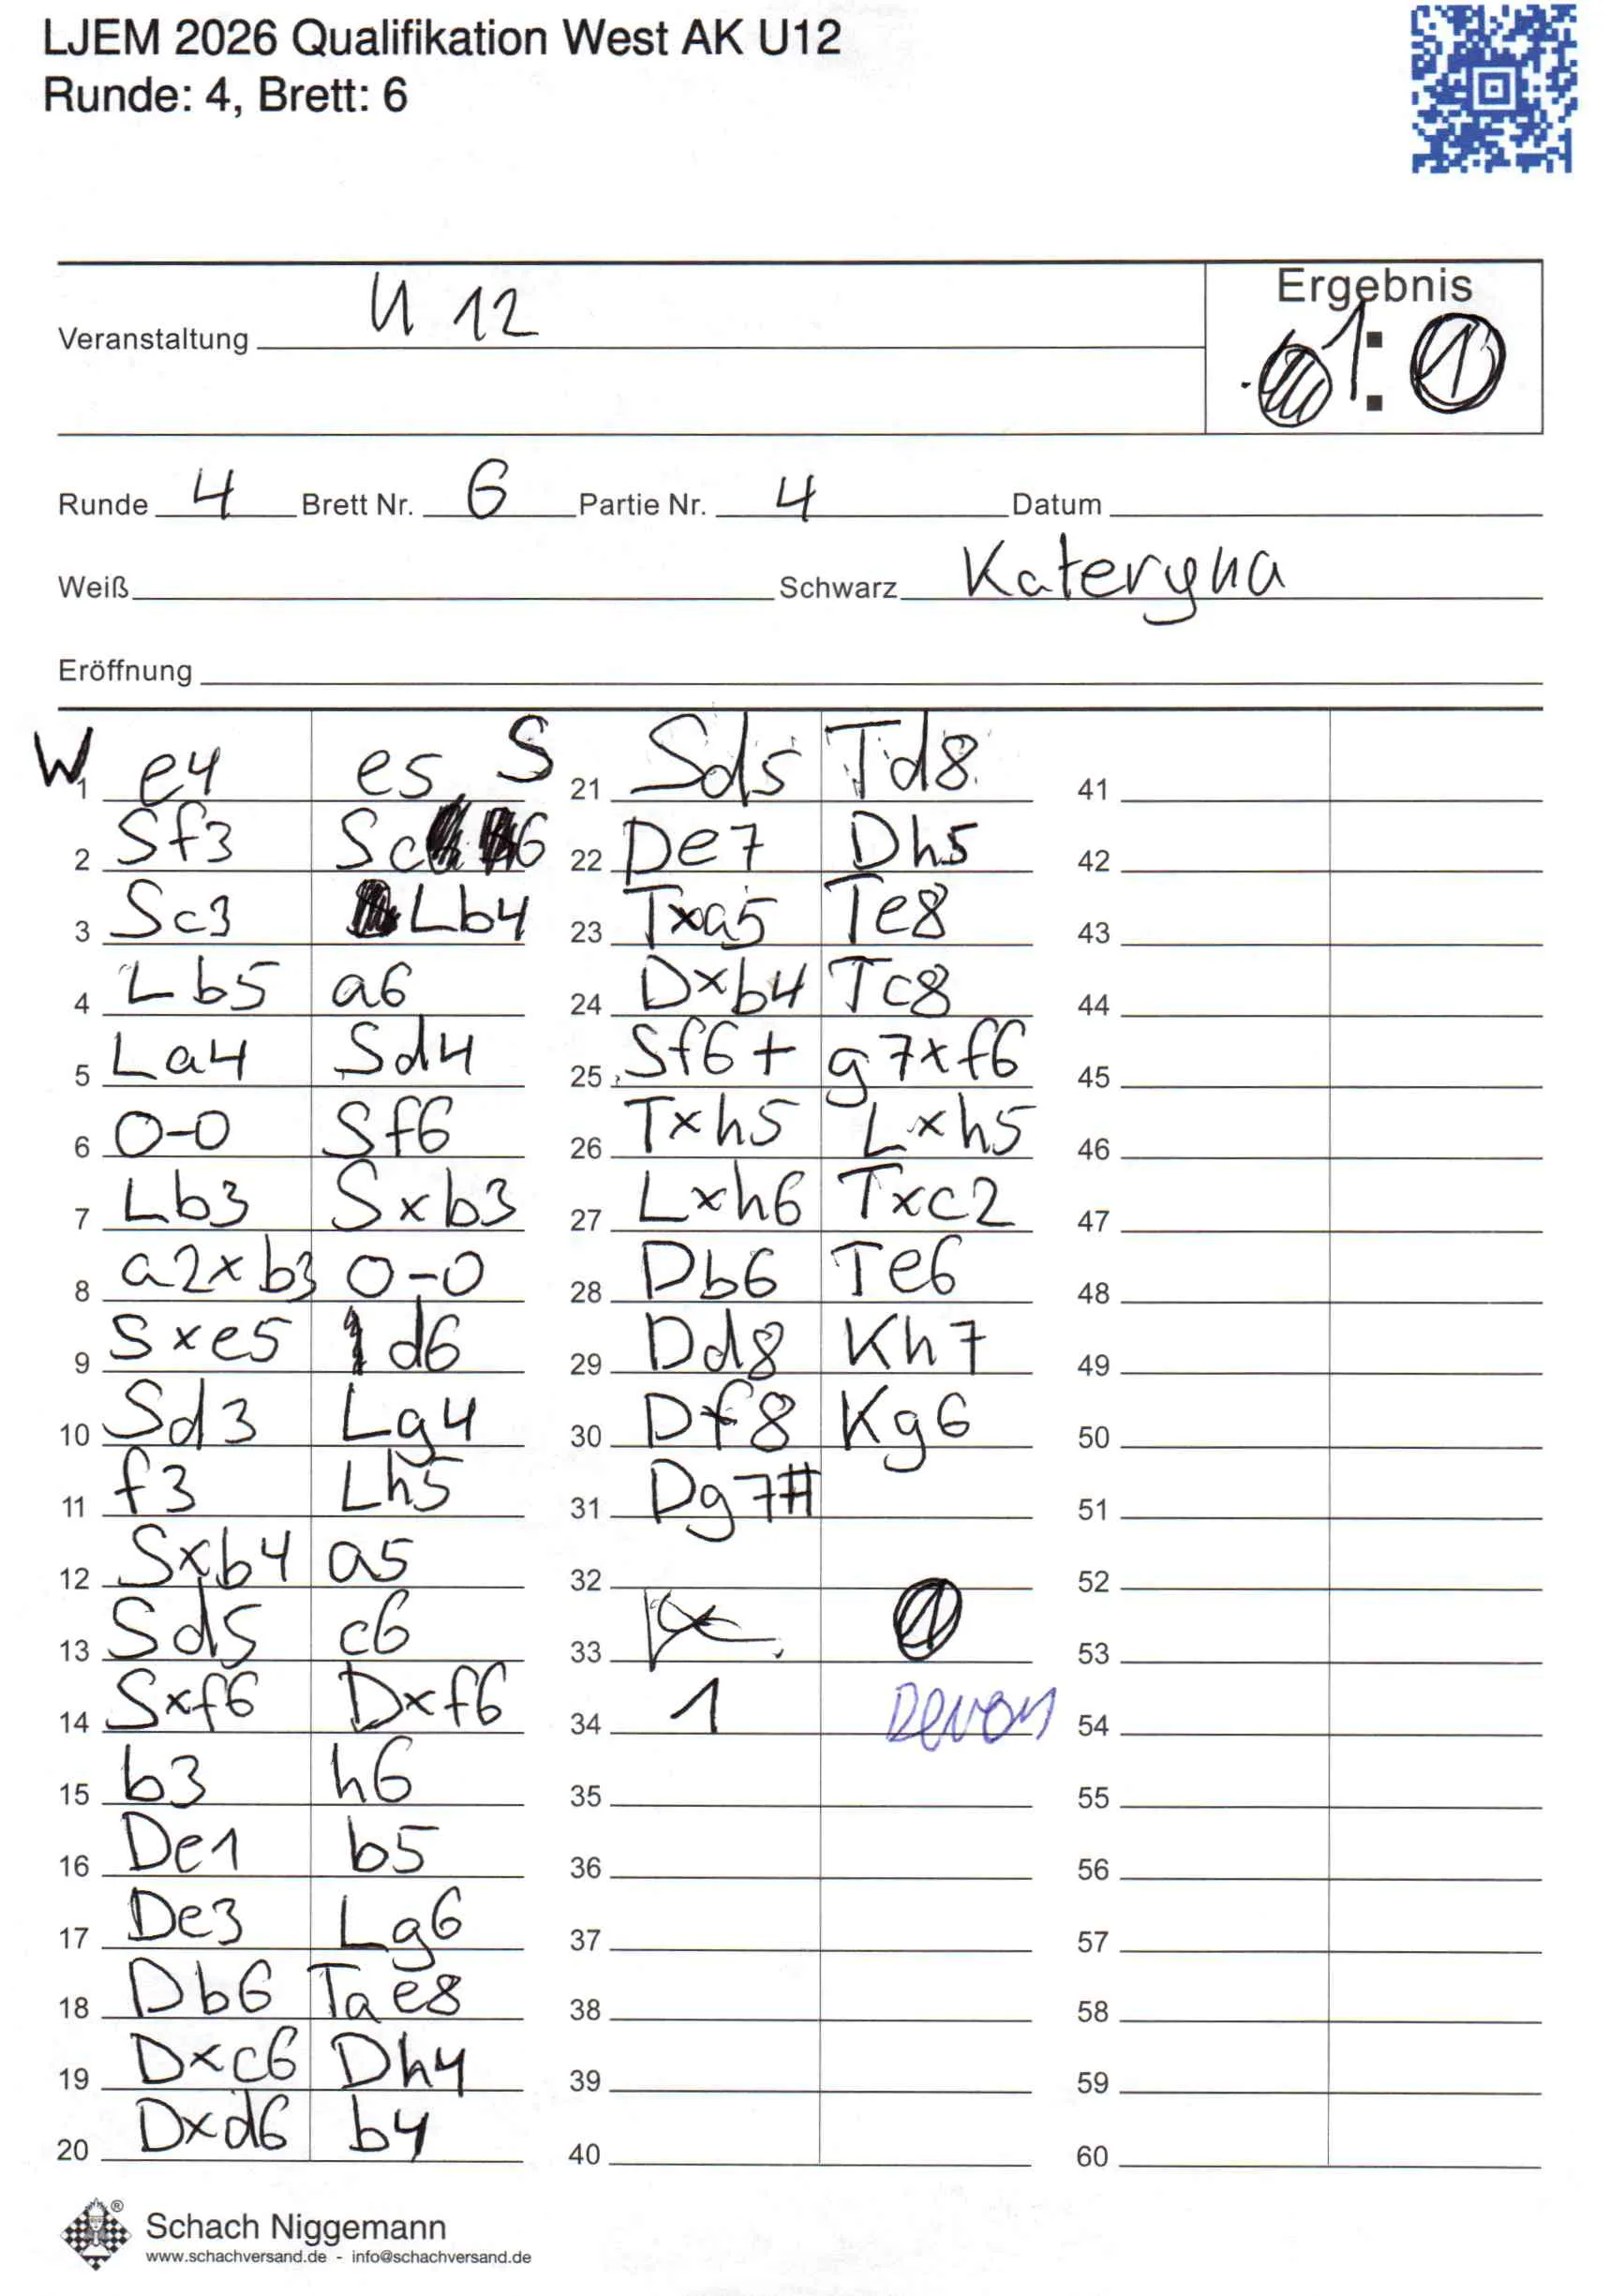 LJEM 2026 Qualifikation West AK U12
Runde: 4, Brett: 6
Ergebnis
Veranstaltung U 12
1 : 1
Runde 4 Brett Nr. 6 Partie Nr. 4 Datum
Weiß Schwarz Kateryna
Eröffnung
W S
1 e4 e5
2 Sf3 Sc6
3 Sc3 Lb4
4 Lb5 a6
5 La4 Sd4
6 0-0 Sf6
7 Lb3 Sxb3
8 a2xb3 0-0
9 Sxe5 d6
10 Sd3 Lg4
11 f3 Lh5
12 Sxb4 a5
13 Sd5 c6
14 Sxf6 Dxf6
15 b3 h6
16 De1 b5
17 De3 Lg6
18 Db6 Tae8
19 Dxc6 Dh4
20 Dxd6 b4
21 Sd5 Td8
22 De7 Dh5
23 Txa5 Te8
24 Dxb4 Tc8
25 Sf6+ g7xf6
26 Txh5 Lxh5
27 Lxh6 Txc2
28 Db6 Te6
29 Dd8 Kh7
30 Df8 Kg6
31 Dg7#
32
33 1
34 1 Devon
35
36
37
38
39
40
41
42
43
44
45
46
47
48
49
50
51
52
53
54
55
56
57
58
59
60
®
Schach Niggemann
www.schachversand.de - info@schachversand.de